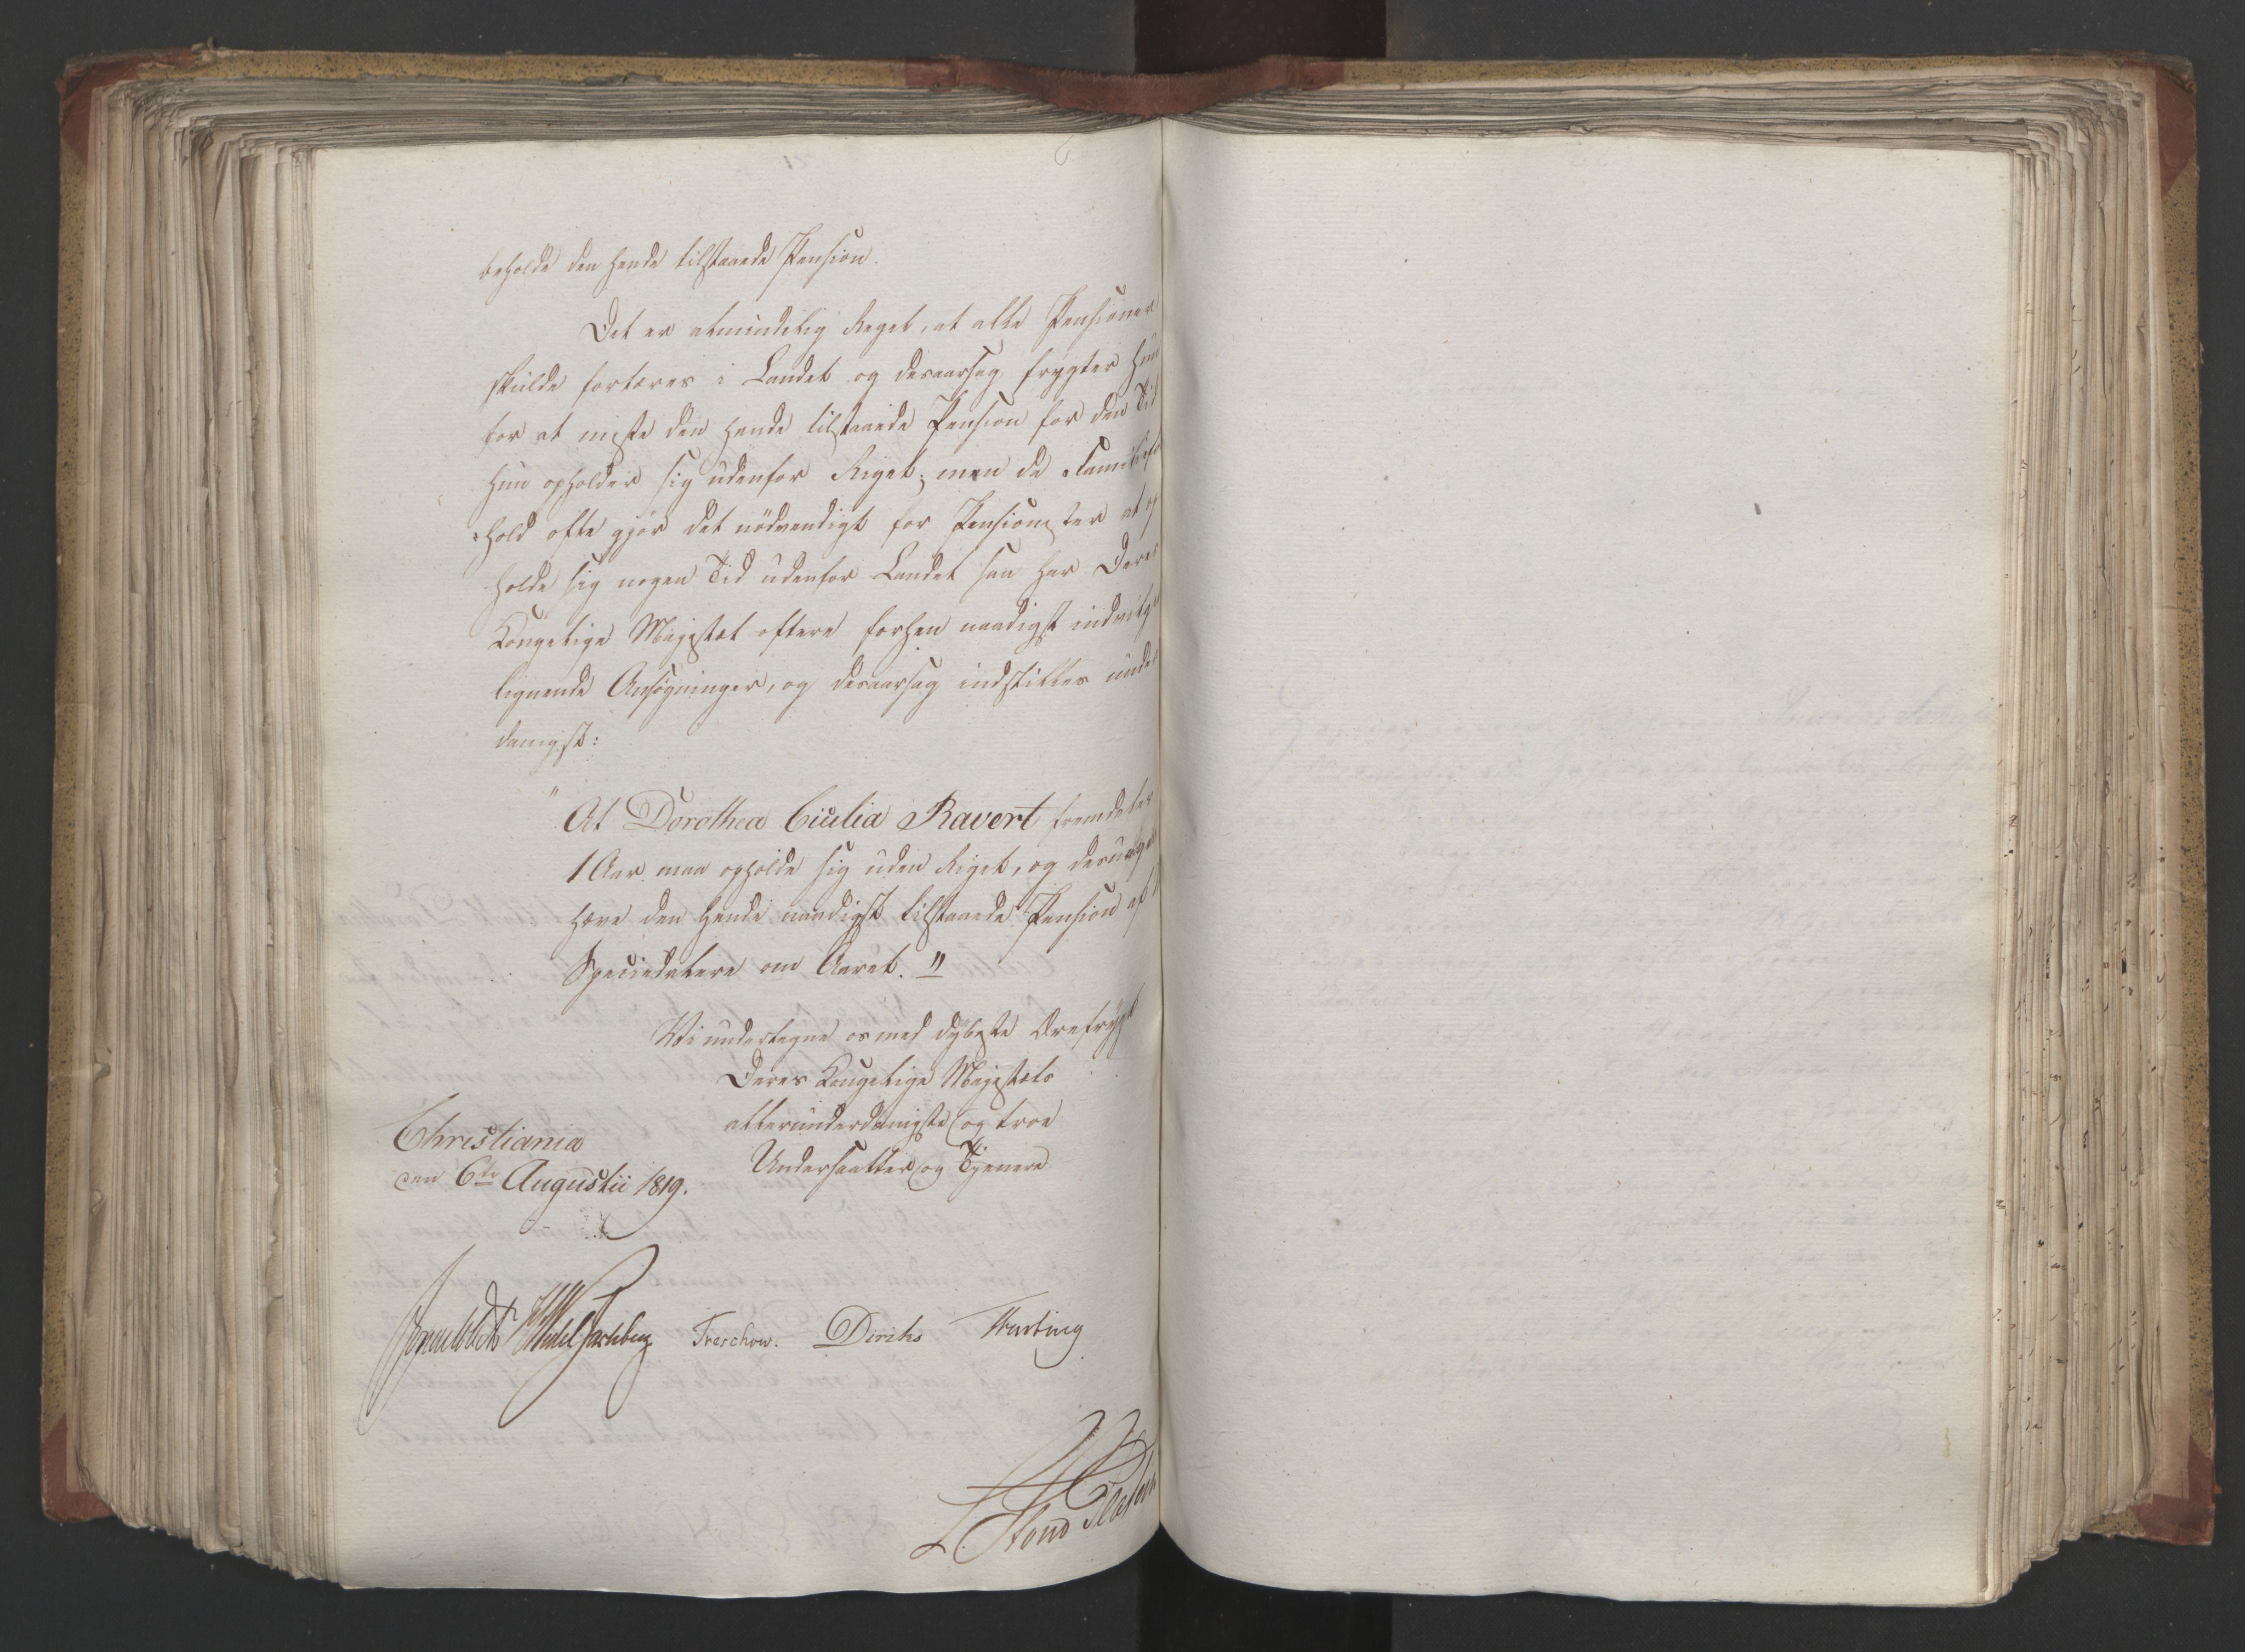 beholde den hende tilstaaede Pension.
Det er almindelig Regel, at alle Pensioner
skulde fortæres i Landet og desaarsag frygter hun
for at miste den hende tilstaaede Pension for den Tid
hun opholder sig udenfor Riget; men da Familiefor
hold ofte gjör det nödvendigt for Pensionister at op
holde sig nogen Tid udenfor Landet saa har Deres
Kongelige Majestæt oftere forhen naadigst indvilget
lignende Ansögninger, og desaarsag indstilles under
danigst:
" At Dorothea Ciulia Ravert fremdeles
1 Aar maa opholde sig uden Riget, og desuagtet
hæve den hende naadigst tilstaaede Pension af
Speciedalere om Aaret. "
Vi undertegne os med dybeste Ærefrygt
Deres Kongelige Majestæts
allerunderdanigste og troe
Undersaatter og Tjenere
Christiania
den 6te Augustii 1819.
Treschow. Diriks